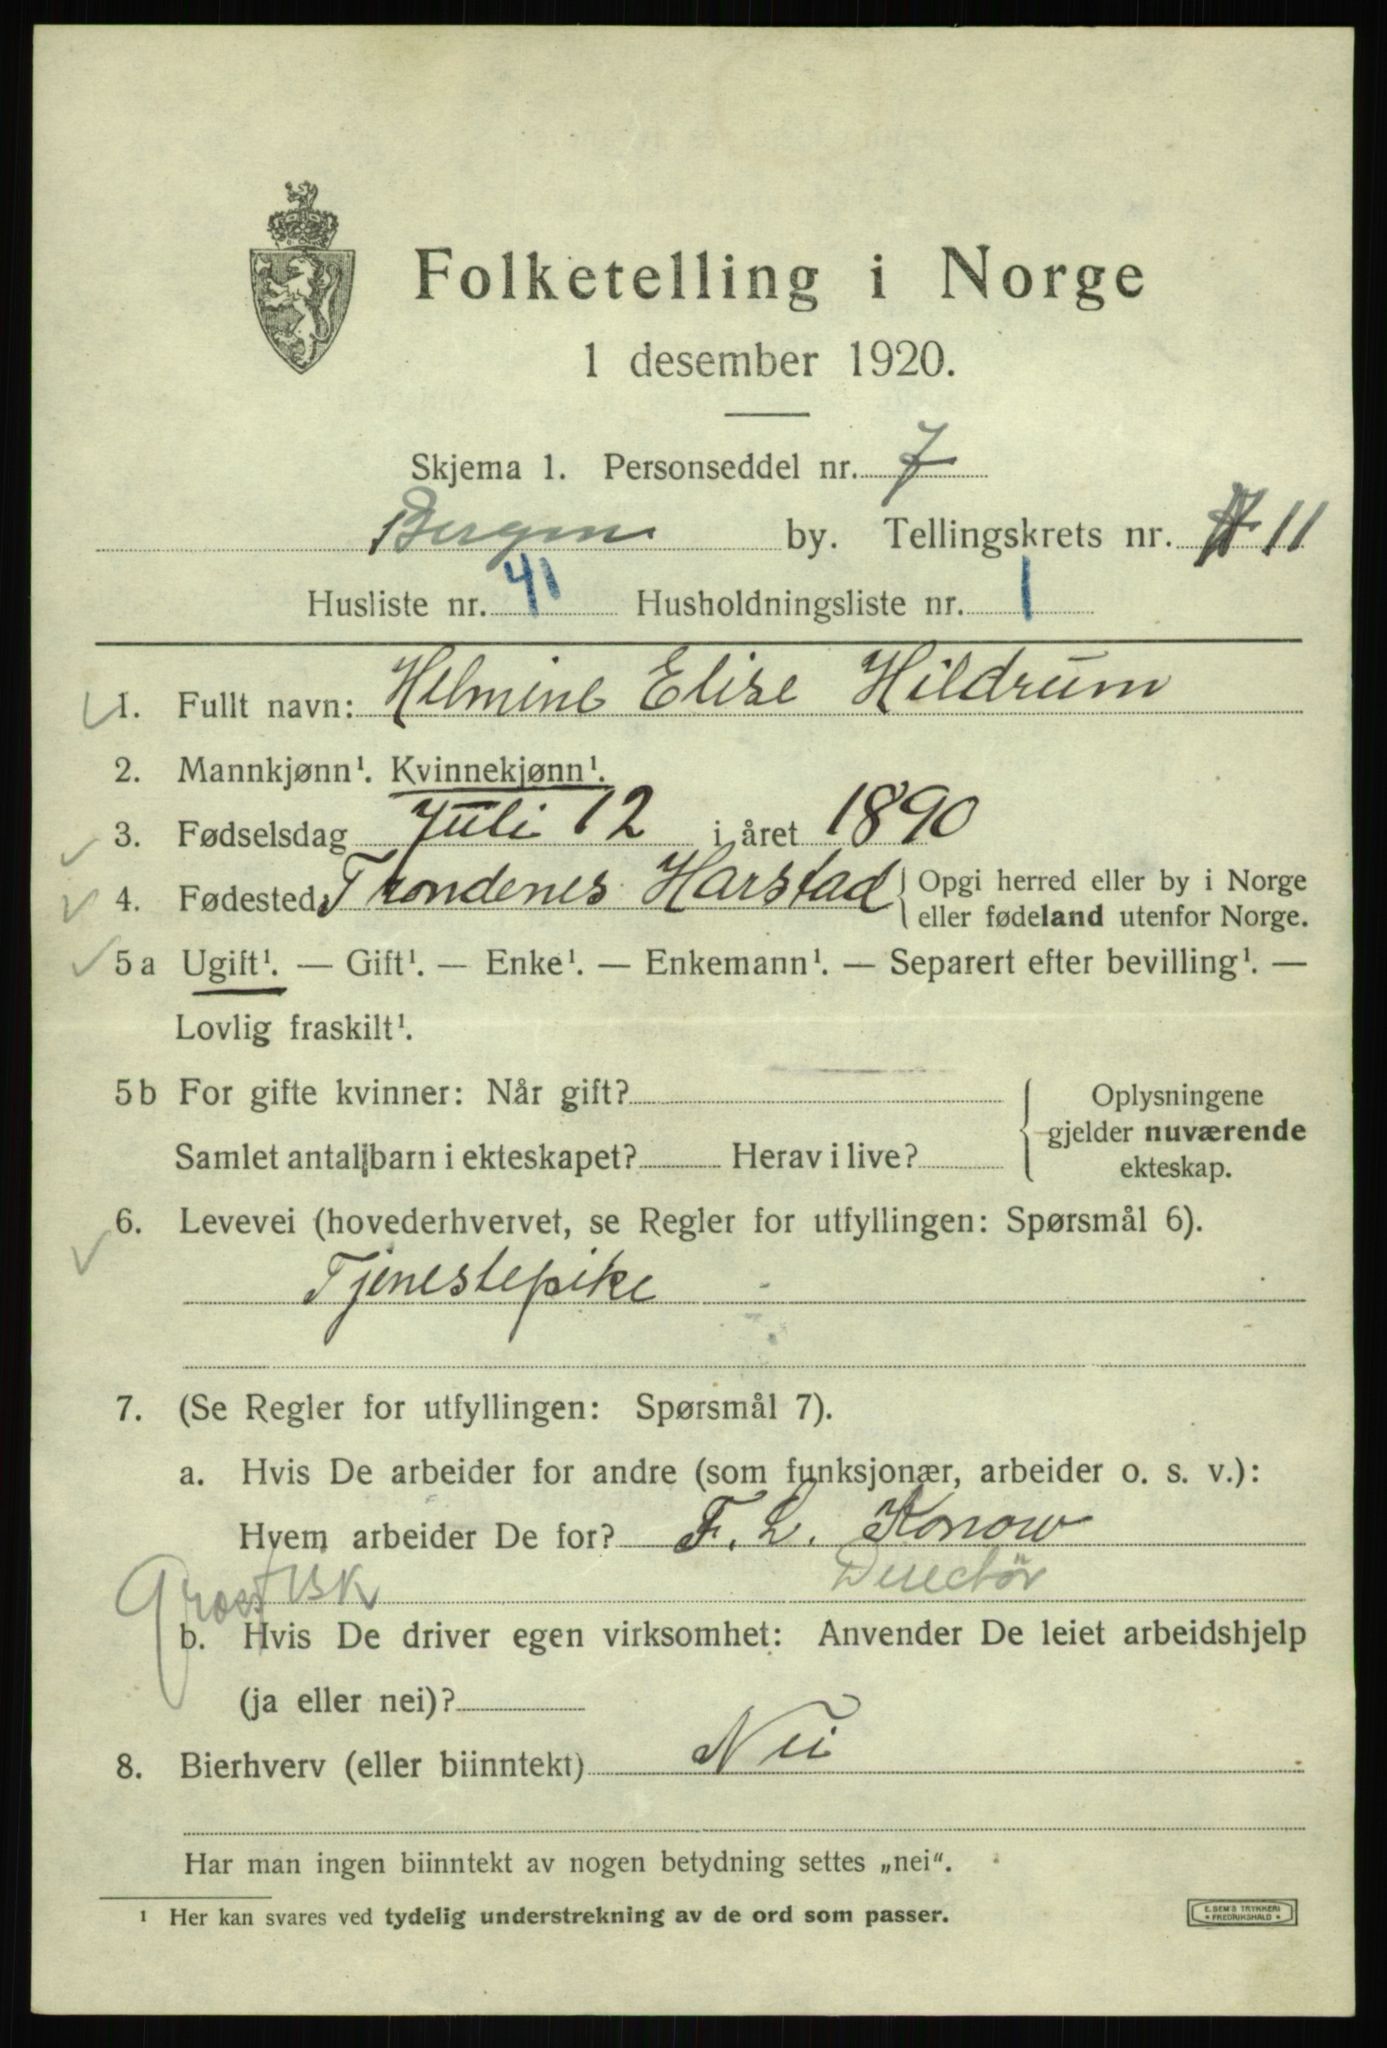 Folketelling i Norge
1 desember 1920.
Skjema 1. Personseddel nr. 7
Bergen by. Tellingskrets nr. 11
Husliste nr. 41 Husholdningsliste nr. 1
1. Fullt navn: Helmine Elise Hildrum
2. Mannkjønn¹. Kvinnekjønn¹.
3. Fødselsdag Juli 12 i året 1890
4. Fødested Trondenes Harstad { Opgi herred eller by i Norge
eller fødeland utenfor Norge.
5a Ugift¹. — Gift¹. — Enke¹. — Enkemann¹. — Separert efter bevilling¹. —
Lovlig fraskilt¹.
5b For gifte kvinner: Når gift? { Oplysningene
gjelder nuværende
Samlet antall barn i ekteskapet? Herav i live?
ekteskap.
6. Levevei (hovederhvervet, se Regler for utfyllingen: Spørsmål 6).
Tjenestepike
7. (Se Regler for utfyllingen: Spørsmål 7).
a. Hvis De arbeider for andre (som funksjonær, arbeider o. s. v.):
Hvem arbeider De for? F. L. Konow
Direktør
b. Hvis De driver egen virksomhet: Anvender De leiet arbeidshjelp
(ja eller nei)?
8. Bierhverv (eller biinntekt) Nei
Har man ingen biinntekt av nogen betydning settes „nei“.
¹ Her kan svares ved tydelig understrekning av de ord som passer.
E. SEM'S TRYKKERI
• FREDRIKSHALD •